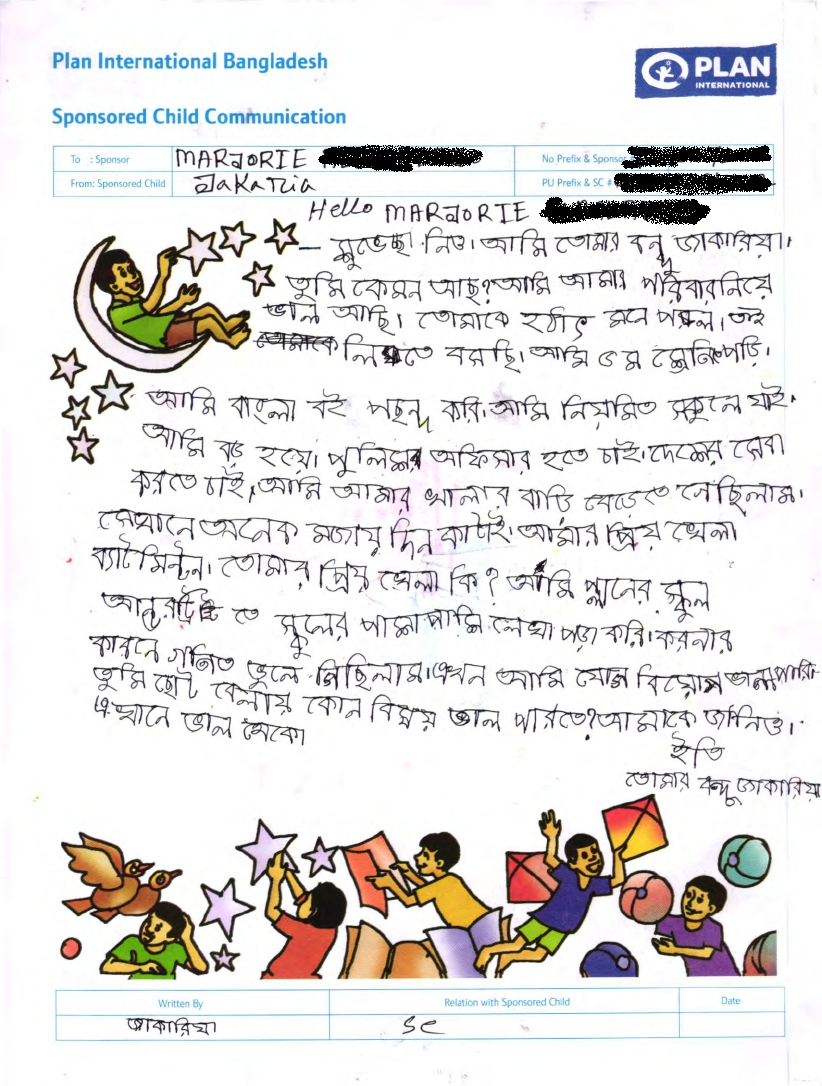 Plan International Bangladesh
PLAN
INTERNATIONAL
Sponsored Child Communication
To : Sponsor MARJORIE No Prefix & Sponsor
From: Sponsored Child JaKaria PU Prefix & SC #
Hello MARJORIE
শুভেচ্ছা নিও। আমি তোমার বন্দু জাকারিয়া।
তুমি কেমন আছ? আমি আমার পরিবার নিয়ে
ভাল আছি। তোমাকে হঠাৎ মনে পড়ল। তাই
লিখতে বসছি। আমি ৬ম শ্রেনিতে পড়ি।
আমি বাংলা বই পছন্দ করি। আমি নিয়মিত স্কুলে যাই।
আমি বড় হয়ে। পুলিশের অফিসার হতে চাই। দেশের সেবা
করতে চাই। আমি আমার খালার বাড়ি বেড়াতে গেছিলাম।
সেখানে অনেক মজায় দিন কাটাই। আমার প্রিয় খেলা
ব্যাটমিন্টন। তোমার প্রিয় খেলা কি? আমি প্লানের স্কুল
তে স্কুলের পাশাপাশি লেখা পড়া করি। করনার
কারনে গনিত ভুলে গিছিলাম। এখন আমি যোগ বিয়োগ ভাল পারি।
তুমি ছোট বেলায় কোন বিষয় ভাল পারতে? আমাকে জানিও।
এখানে ভাল থেকো।
ইতি
তোমার বন্দু জাকারিয়া
Written By Relation with Sponsored Child Date
জাকারিয়া SC